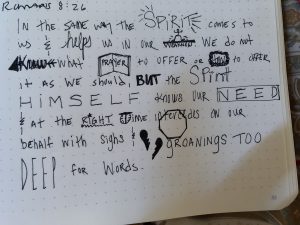 Romans 8:26
In the same way the SPIRIT comes to
us & helps us in our We do not
Know what PRAYER to offer or to offer
it as we should, BUT the Spirit
HIMSELF knows our NEED
& at the RIGHT time intercedes on our
behalf with sighs & GROANINGS TOO
DEEP for Words.